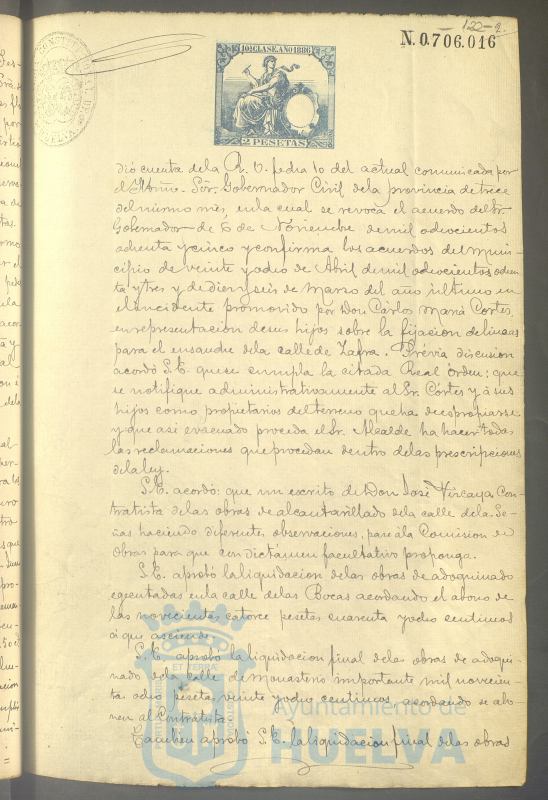 122-2.
N.0.706.016
10ª CLASE. AÑO 1886
2 PESETAS
HUELVA
dió cuenta de la R. O. fecha 10 del actual comunicada por
el Sor. Gobernador Civil de la provincia de trece
del mismo mes, en la cual se revoca el acuerdo del Sr.
Gobernador de 6 de Noviembre de mil odocientos
ochenta y cinco y confirma los acuerdos del Muni-
cipio de veinte y odio de Abril de mil odocientos oden-
ta y tres y de diez y seis de Marzo del año último en
el incidente promovido por Don Cárlos Maria Cortes,
en representacion de sus hijos sobre la fijacion de lineas
para el ensanche de la calle de Zafra. Prévia discusion
acordó S.E. que se cumpla la citada Real órden: que
se notifique administrativamente al Sr. Córtes y á sus
hijos como propietarios del terreno que ha de espropiarse
y que asi evacuado proceda el Sr. Alcalde ha hacer todas
las reclamaciones que procedan dentro de las prescripciones
de la ley.
S.E. acordó: que un escrito de Don José Vizcaya Con-
tratista de las obras de alcantarillado de la calle de la Se-
ñas haciendo diferentes observaciones, pase á la Comision de
Obras para que con dictámen facultativo proponga.
S.E. aprobó la liquidacion de las obras de adoquinado
egecutadas en la calle de las Bocas acordando el abono de
las novecientas catorce pesetas cuarenta y odio centimos
á que asciende.
S.E. aprobó la liquidacion final de las obras de adoqui-
nado de la calle de Monasterio importante mil novecien-
ta odio pesetas veinte y odio centimos, acordando se abo-
nen al Contratista.
Tambien aprobó S.E. la liquidacion final de las obras
Ayuntamiento de
HUELVA